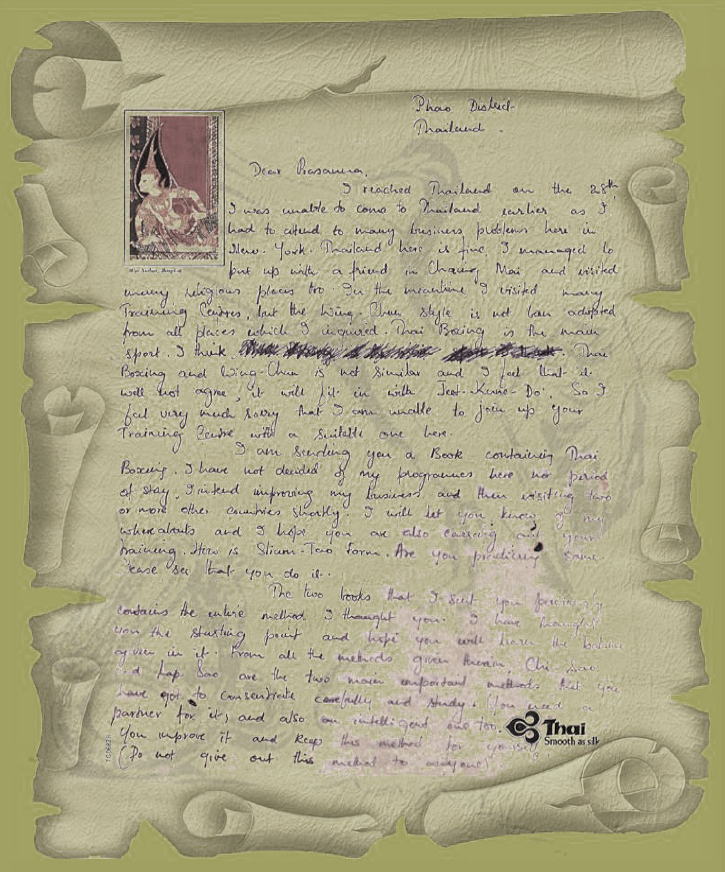 Phao District
Thailand.
Dear Prasanna,
I reached Thailand on the 28th.
I was unable to come to Thailand earlier as I
had to attend to many business problems here in
New York. Thailand here is fine. I managed to
put up with a friend in Chaing Mai and visited
many religious places too. In the meantime I visited many
Training Centres, but the Wing-Chun style is not been adopted
from all places which I inquired. Thai Boxing is the main
sport. I think. Thai
Boxing and Wing-Chun is not similar and I feel that it
will not agree, it will fit in with 'Jeet-Kune-Do'. So I
feel very much sorry that I am unable to join up your
Training Centre with a suitable one here.
I am sending you a Book containing Thai
Boxing. I have not decided of my programmes here nor period
of stay. I intend improving my business and then visiting two
or more other countries shortly. I will let you know
whereabouts and I hope you are also carrying your
training. How is Slium-Tao form. Are you practicing same
see that you do it.
The two books that I sent you
contains the entire method I thought you. I have thought
you the starting point and hope you will learn the balance
given in it. From all the methods given therein, Chi Sao
and Lap Sao are the two main important methods that you
have got to consentrate carefully and study. You need a
partner for it, and also an intelligent one too.
You improve it and keep this method for yourself
(Do not give out this method to anyone)
Thai
Smooth as silk